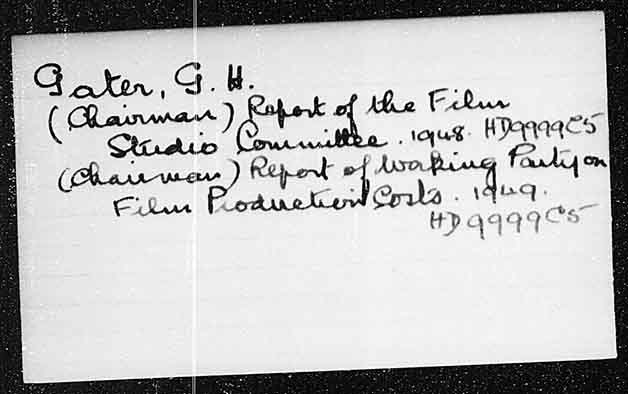 Gater, G. H.
(Chairman) Report of the Film
Studio Committee. 1948. HD9999C5
(Chairman) Report of Working Party on
Film Production Costs. 1949.
HD9999C5